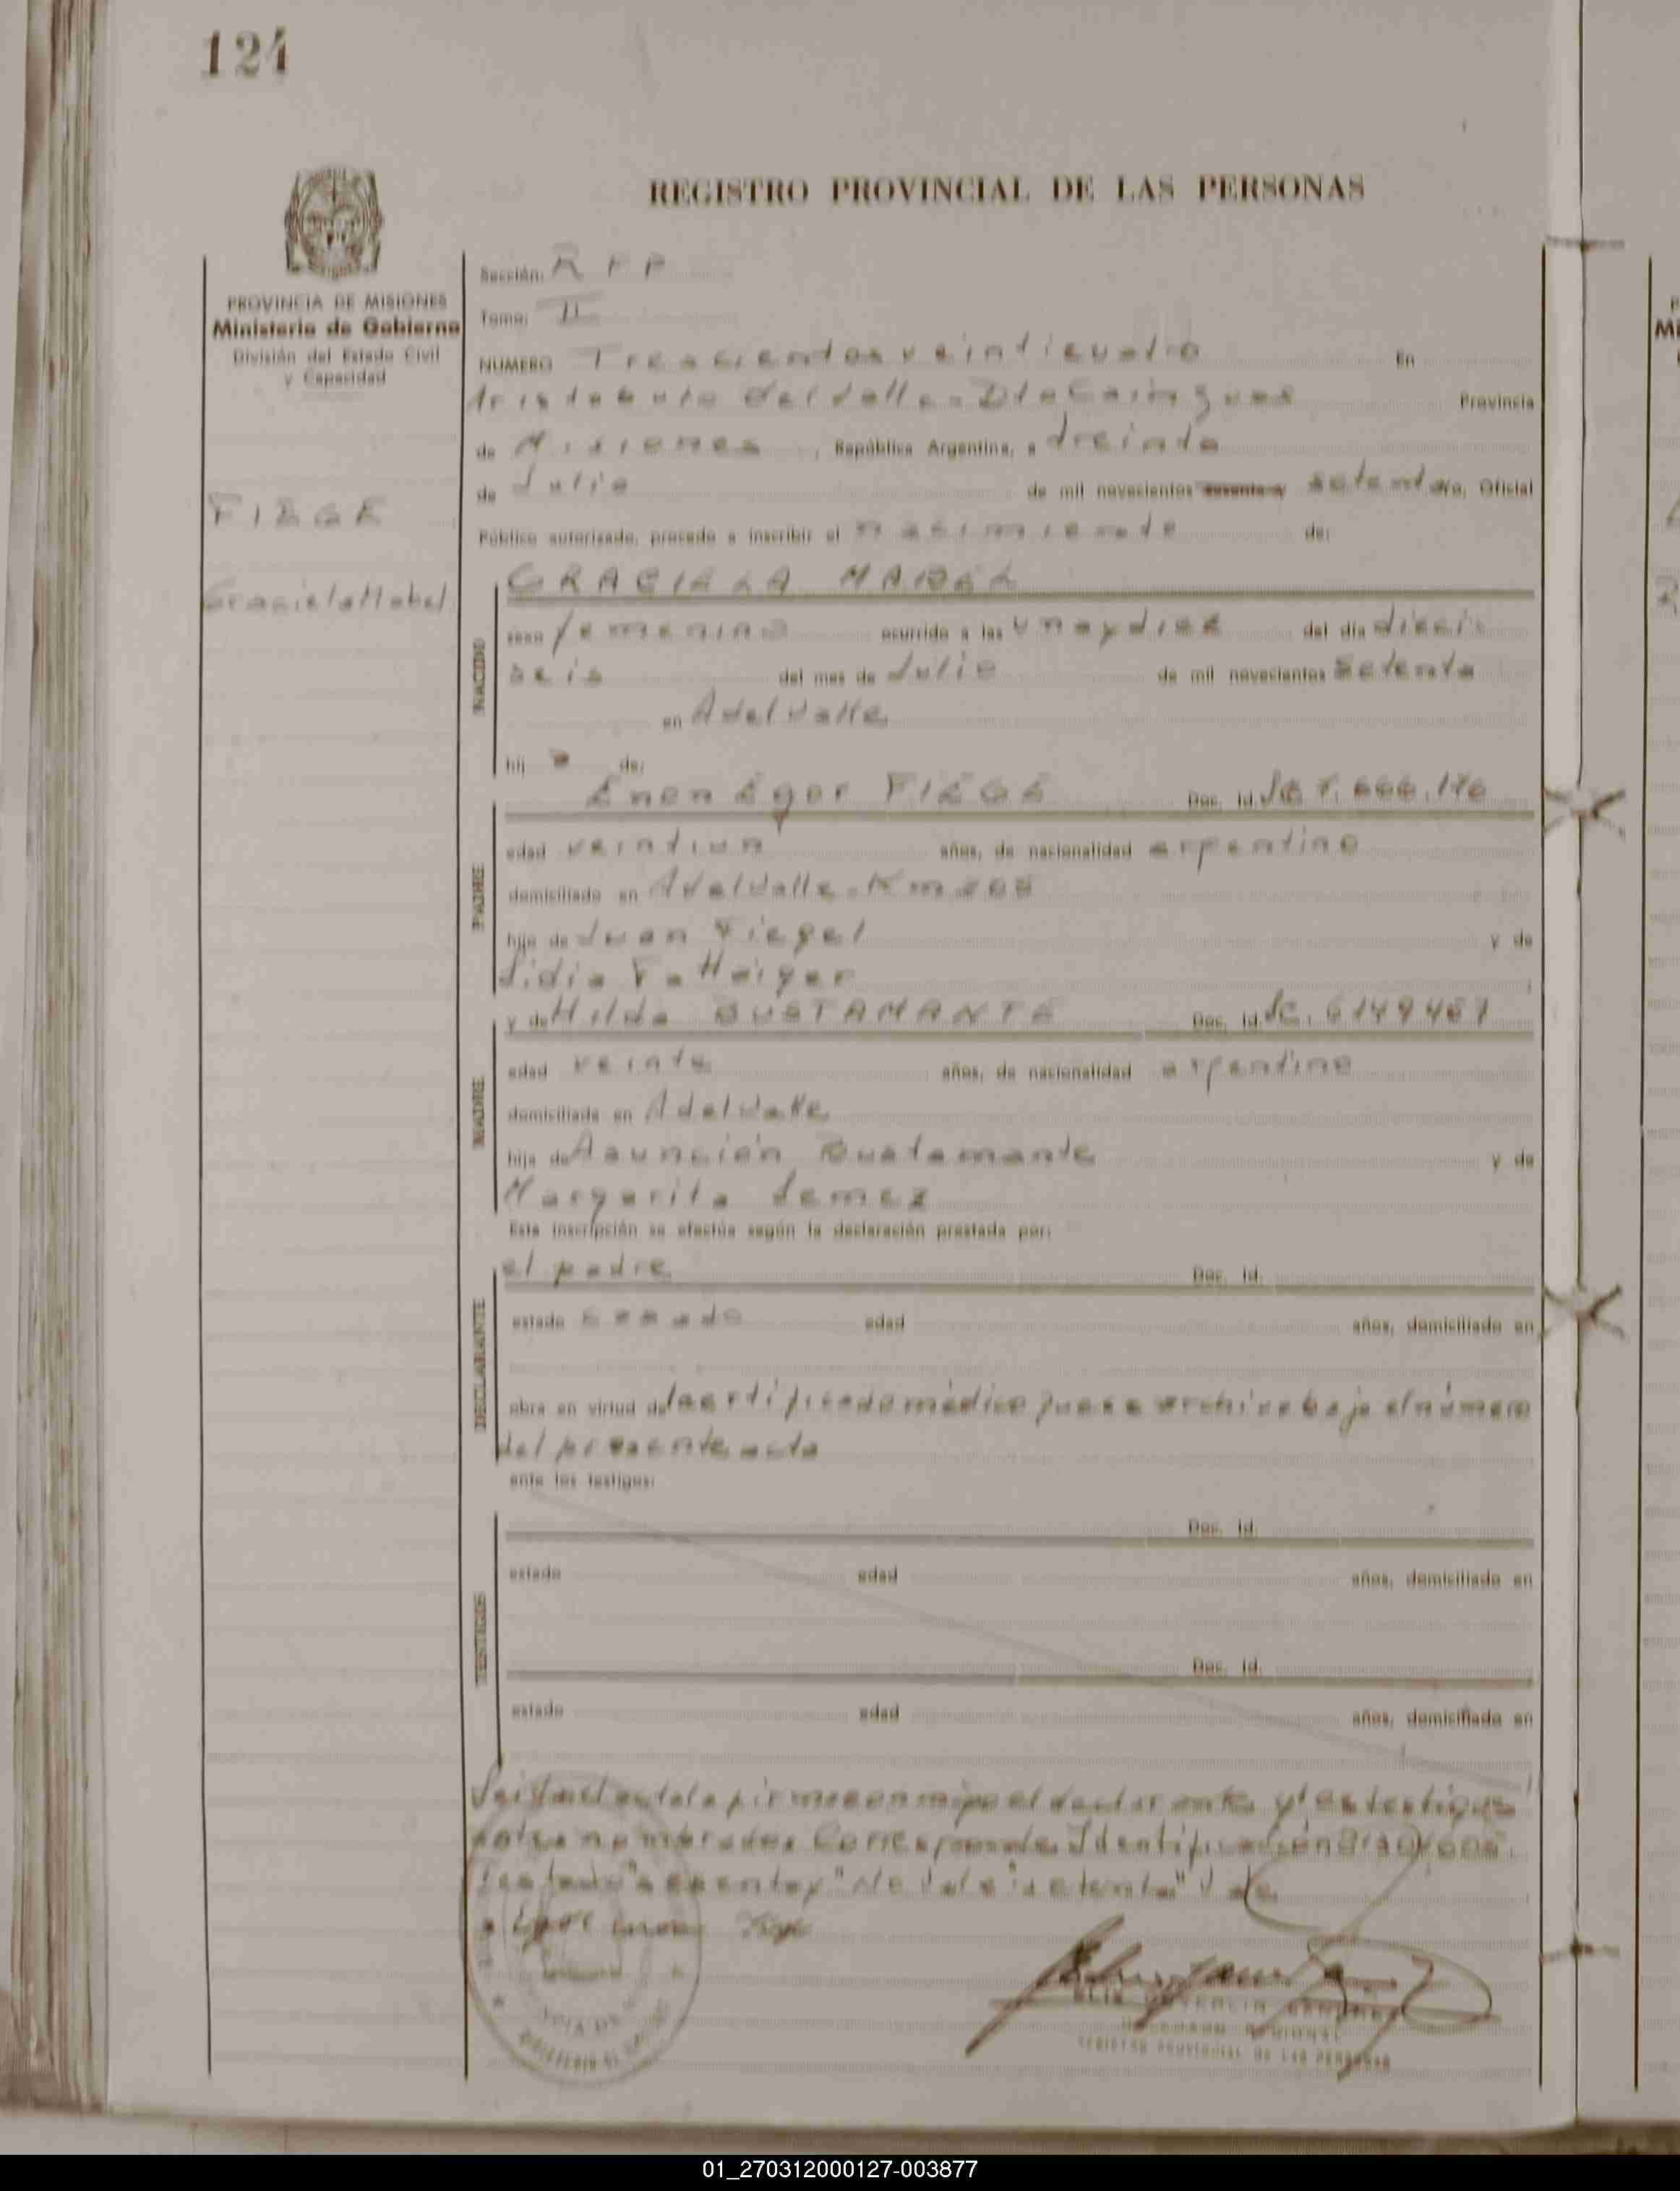 124
REGISTRO PROVINCIAL DE LAS PERSONAS
PROVINCIA DE MISIONES
Ministerio de Gobierno
División del Estado Civil
y Capacidad
FIEGE
Graciela Mabel
Sección: R F P
Tomo: II
NUMERO Trescientos veinticuatro En
Aristobulo del Valle - Dto Cainguas Provincia
de Misiones, República Argentina, a treinta
de Julio de mil novecientos sesenta y setenta yo, Oficial
Público autorizado, procedo a inscribir el nacimiento de:
NACIDO
GRACIELA MABEL
sexo femenino ocurrido a las una y diez del día dieci
seis del mes de Julio de mil novecientos setenta
en A del Valle
hij a de:
PADRE
Enon Egor FIEGE Doc. Id.
edad veintiun años, de nacionalidad argentino
domiciliado en A del Valle - Km
hijo de Juan Fiegel y de
Lidia
MADRE
y de Hilda BUSTAMANTE Doc. Id. LC. 6149467
edad veinte años, de nacionalidad argentina
domiciliada en A del Valle
hija de Asunción Bustamante y de
Margarita
Esta inscripción se efectúa según la declaración prestada por:
DECLARANTE
el padre Doc. Id.
estado casado edad años, domiciliado en
obra en virtud del certificado médico que se archiva bajo el número
del presente acta
ante los testigos:
TESTIGOS
Doc. Id.
estado edad años, domiciliado en
Doc. Id.
estado edad años, domiciliado en
Leida el acta la firman conmigo el declarante y los testigos
antes nombrados Corresponde Identificación
Testado "sesenta y" No Vale "setenta" Vale
REGISTRO PROVINCIAL DE LAS PERSONAS
01_270312000127-003877